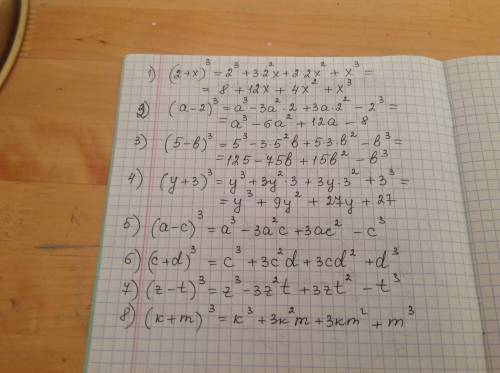 1) (2+x)³ = 2³+3·2²x+2·2x²+x³ =
= 8+12x+4x²+x³
2) (a-2)³ = a³-3a²·2+3a·2²-2³ =
= a³-6a²+12a-8
3) (5-b)³ = 5³-3·5²b+5·3·b²-b³ =
= 125-75b+15b²-b³
4) (y+3)³ = y³+3y²·3+3y·3²+3³ =
= y³+9y²+27y+27
5) (a-c)³ = a³-3a²c+3ac²-c³
6) (c+d)³ = c³+3c²d+3cd²+d³
7) (z-t)³ = z³-3z²t+3zt²-t³
8) (к+m)³ = к³+3к²m+3кm²+m³